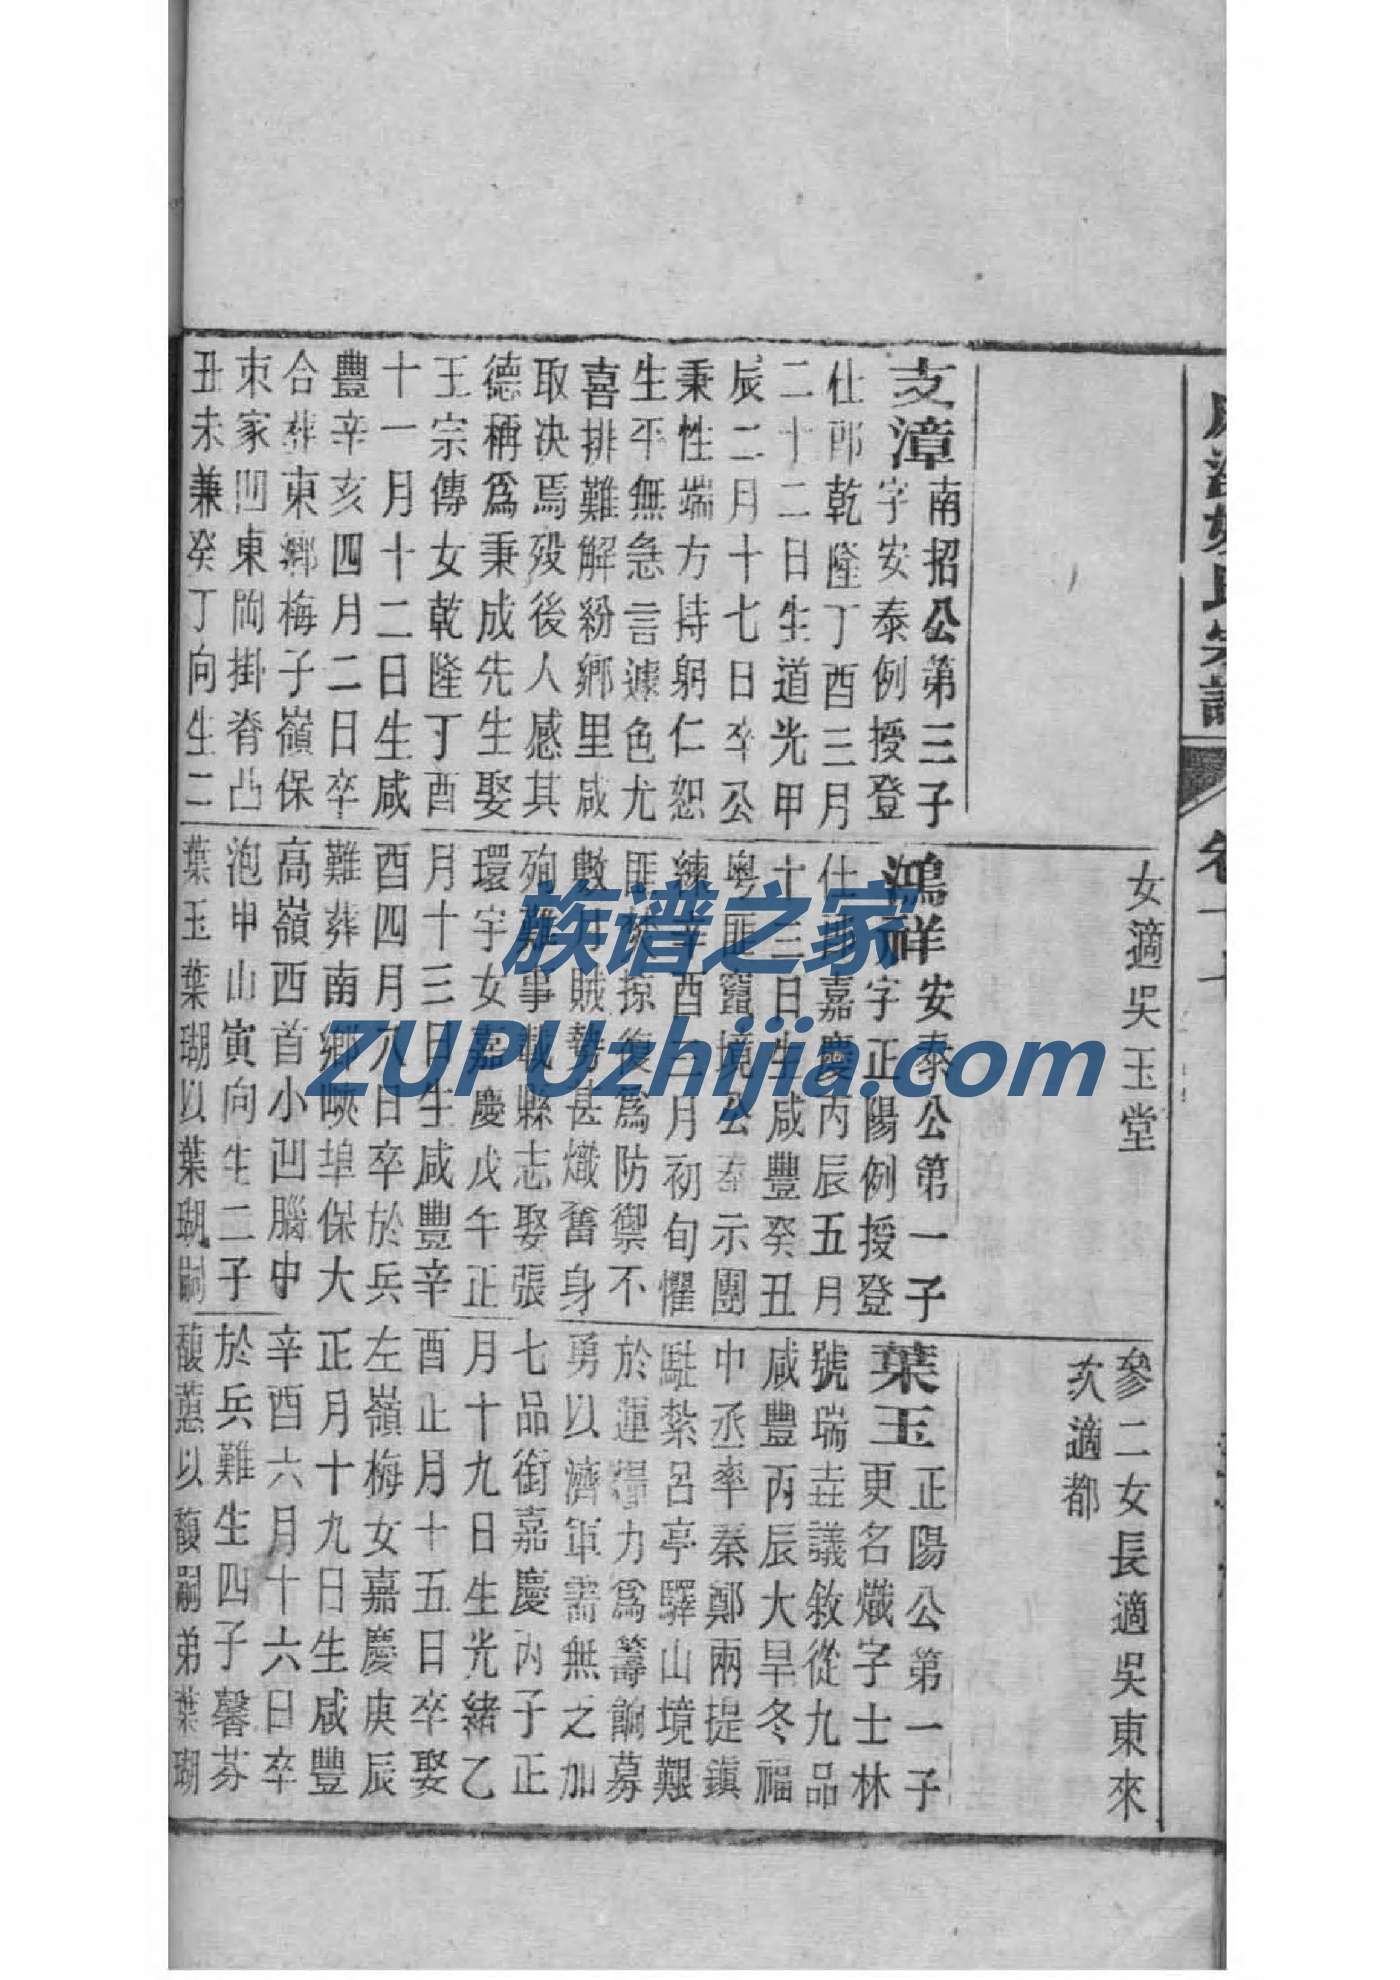 女適吳玉堂
參二女長適吳東來
次適都
支漳
南招公第三子
字安泰例授登
仕郎乾隆丁酉三月
二十二日生道光甲
辰二月十七日卒公
秉性端方持躬仁恕
生平無急言遽色尤
喜排難解紛鄉里咸
取决焉歿後人感其
德稱爲秉成先生娶
王宗傳女乾隆丁酉
十一月十二日生咸
豐辛亥四月二日卒
合葬東鄉梅子嶺保
朿家凹東岡掛脊凸
丑未兼癸丁向生二
鴻祥
安泰公第一子
字正陽例授登
仕郎嘉慶丙辰五月
十三日生咸豐癸丑
粵匪竄境公奉示團
練辛酉二月初旬懼
匪掠復爲防禦不
數月賊勢甚熾奮身
殉難事載縣志娶張
環宇女嘉慶戊午正
月十三日生咸豐辛
酉四月八日卒於兵
難葬南鄉峽埠保大
高嶺西首小凹腦中
泡申山寅向生二子
葉玉葉瑚以葉瑚嗣
葉玉
正陽公第一子
更名熾字士林
號瑞圭議敘從九品
咸豐丙辰大旱冬福
中丞率秦鄭兩提鎮
駐紮呂亭驛山境艱
於運糧力爲籌餉募
勇以濟軍需無之加
七品銜嘉慶丙子正
月十九日生光緒乙
酉正月十五日卒娶
左嶺梅女嘉慶庚辰
正月十九日生咸豐
辛酉六月十六日卒
於兵難生四子馨芬
馥蕙以馥嗣弟葉瑚
族谱之家
ZUPUzhijia.com